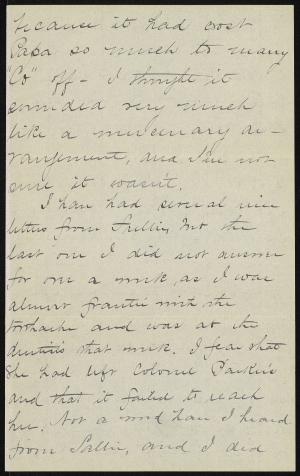 because it had cost
Papa so much to marry
"Co" off - I thought it
sounded very much
like a mercenary ar-
rangement, and I'm not
sure it wasn't.
I have had several nice
letters from Sallie, but the
last one I did not answer
for over a week, as I was
almost frantic with the
toothache and was at the
dentist's that week. I fear that
she had left Colonel Parker's
and that it failed to reach
her. Not a word have I heard
from Sallie, and I did